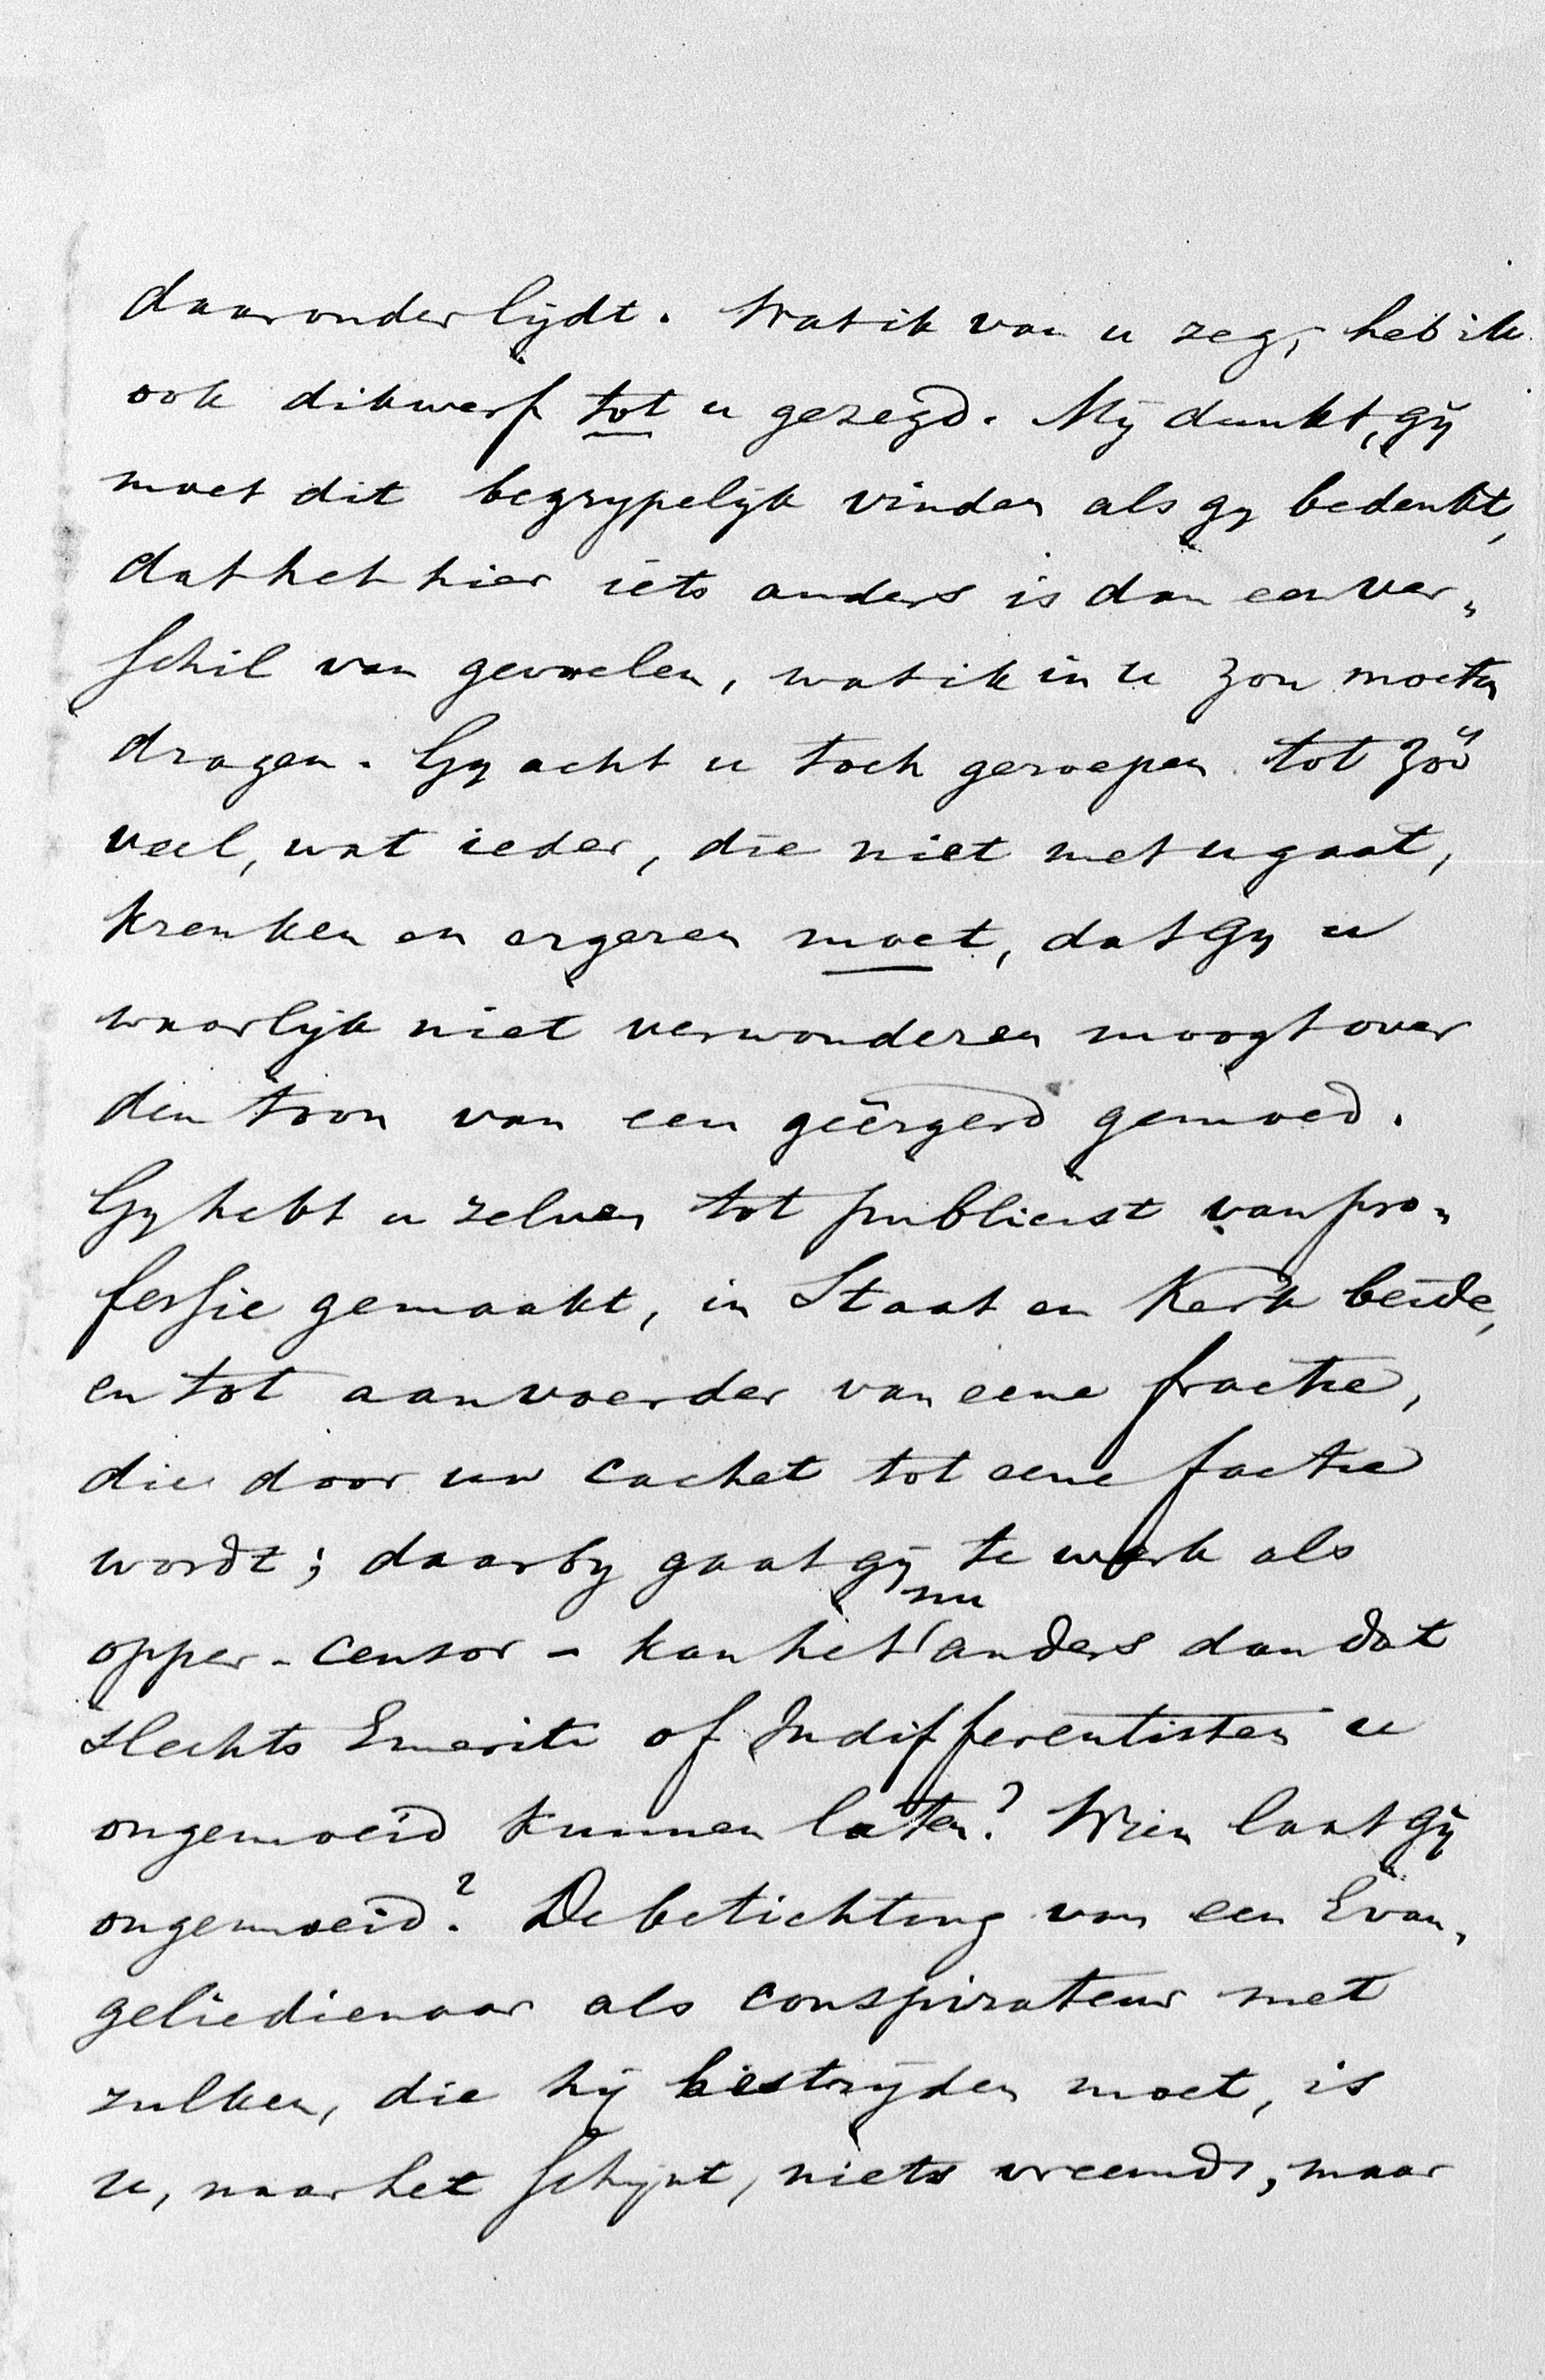 daaronder lijdt. Wat ik van u zeg, heb ik
ook dikwerf tot u gezegd. Mij dunkt, gij
moet dit begrypelijk vinden als gy bedenkt,
dat het hier iets anders is dan een ver„
schil van gevoelen, wat ik in u zou moeten
dragen. Gy acht u toch geroepen tot zóó
veel, wat ieder, die niet met u gaat,
krenken en ergeren moet, dat Gy u
waarlijk niet verwonderen moogt over
den toon van een geërgerd gemoed.
Gy hebt u zelven tot publicist van pro„
fessie gemaakt, in Staat en Kerk beide,
en tot aanvoerder van eene fractie,
die door uw cachet tot eene factie
wordt; daarby gaat gij te werk als
opper-censor – kan het nu anders dan dat
slechts Emeriti of Indifferentisten u
ongemoeid kunnen laten? Wien laat gij
ongemoeid? De betichting van een Evan„
geliedienaar als conspirateur met
zulken, die hij bestrijden moet, is
u, naar het schijnt, niets vreemds, maar